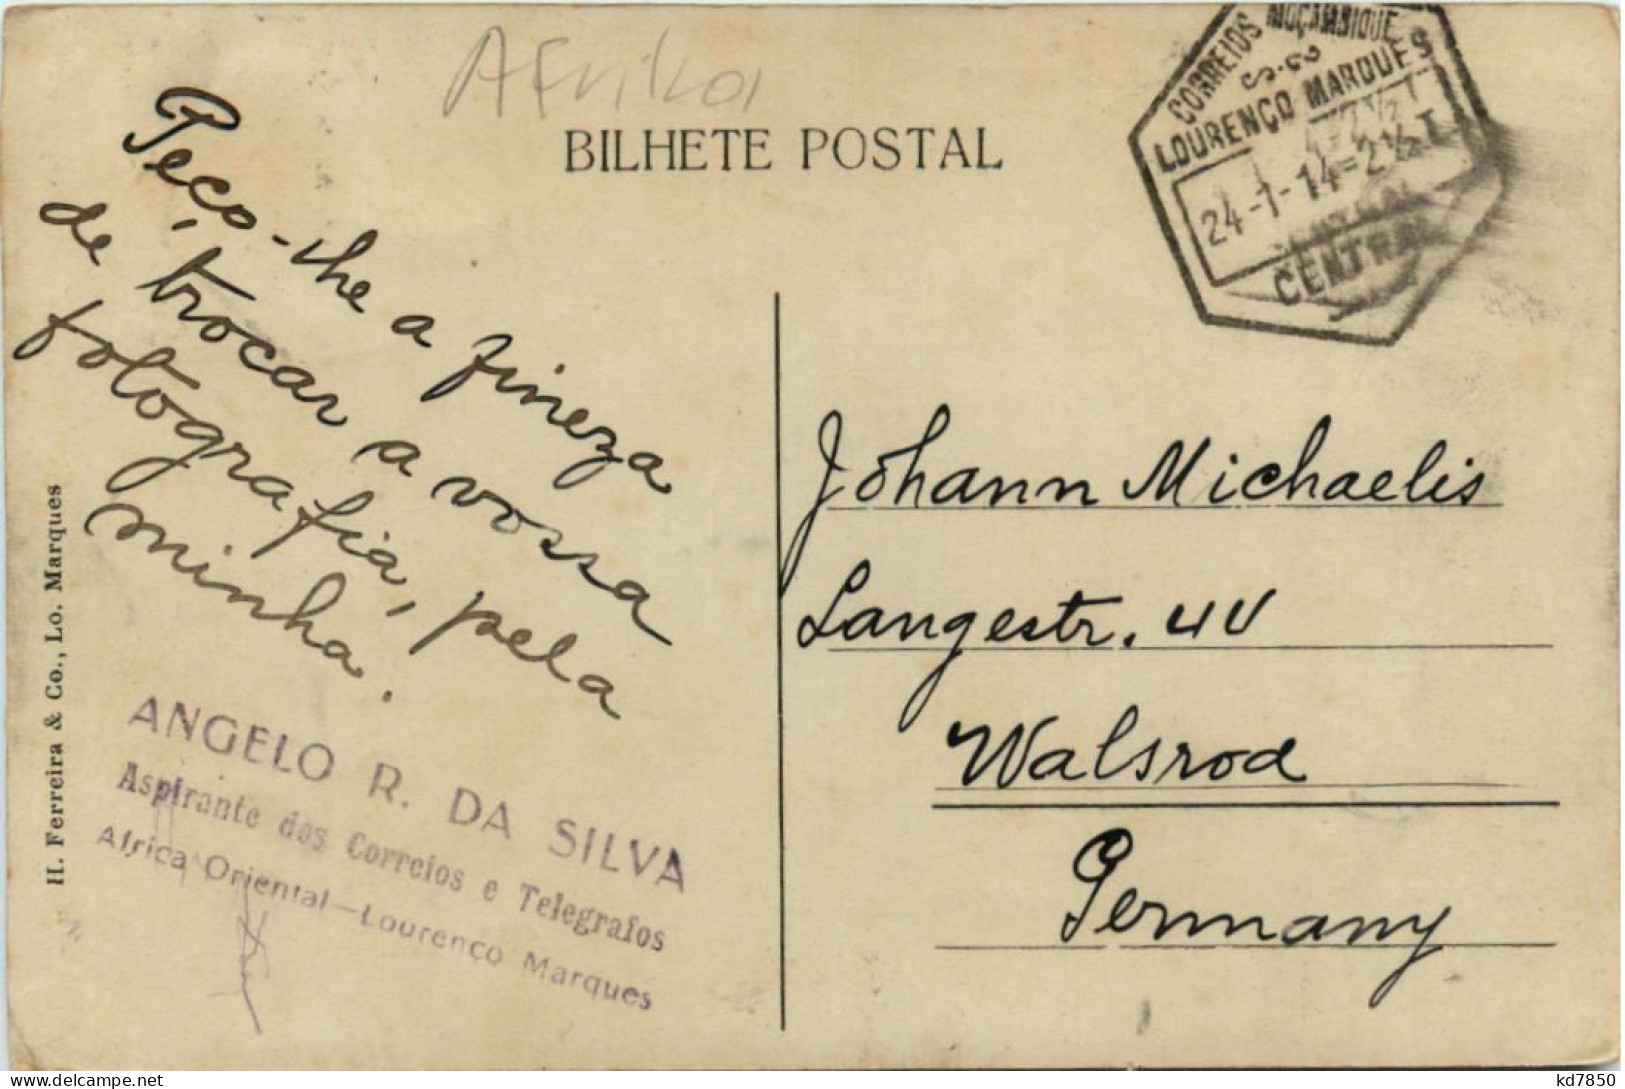 Afrika
BILHETE POSTAL
CORREIOS MOÇAMBIQUE
LOURENÇO MARQUES
24-1-14=2½T
CENTRAL
Peço-lhe a fineza
de trocar a vossa
fotografia, pela
minha.
ANGELO R. DA SILVA
Aspirante dos Correios e Telegrafos
Africa Oriental—Lourenço Marques
H. Ferreira & Co., Lo. Marques
Johann Michaelis
Langestr. 44
Walsrod
Germany
kd7850